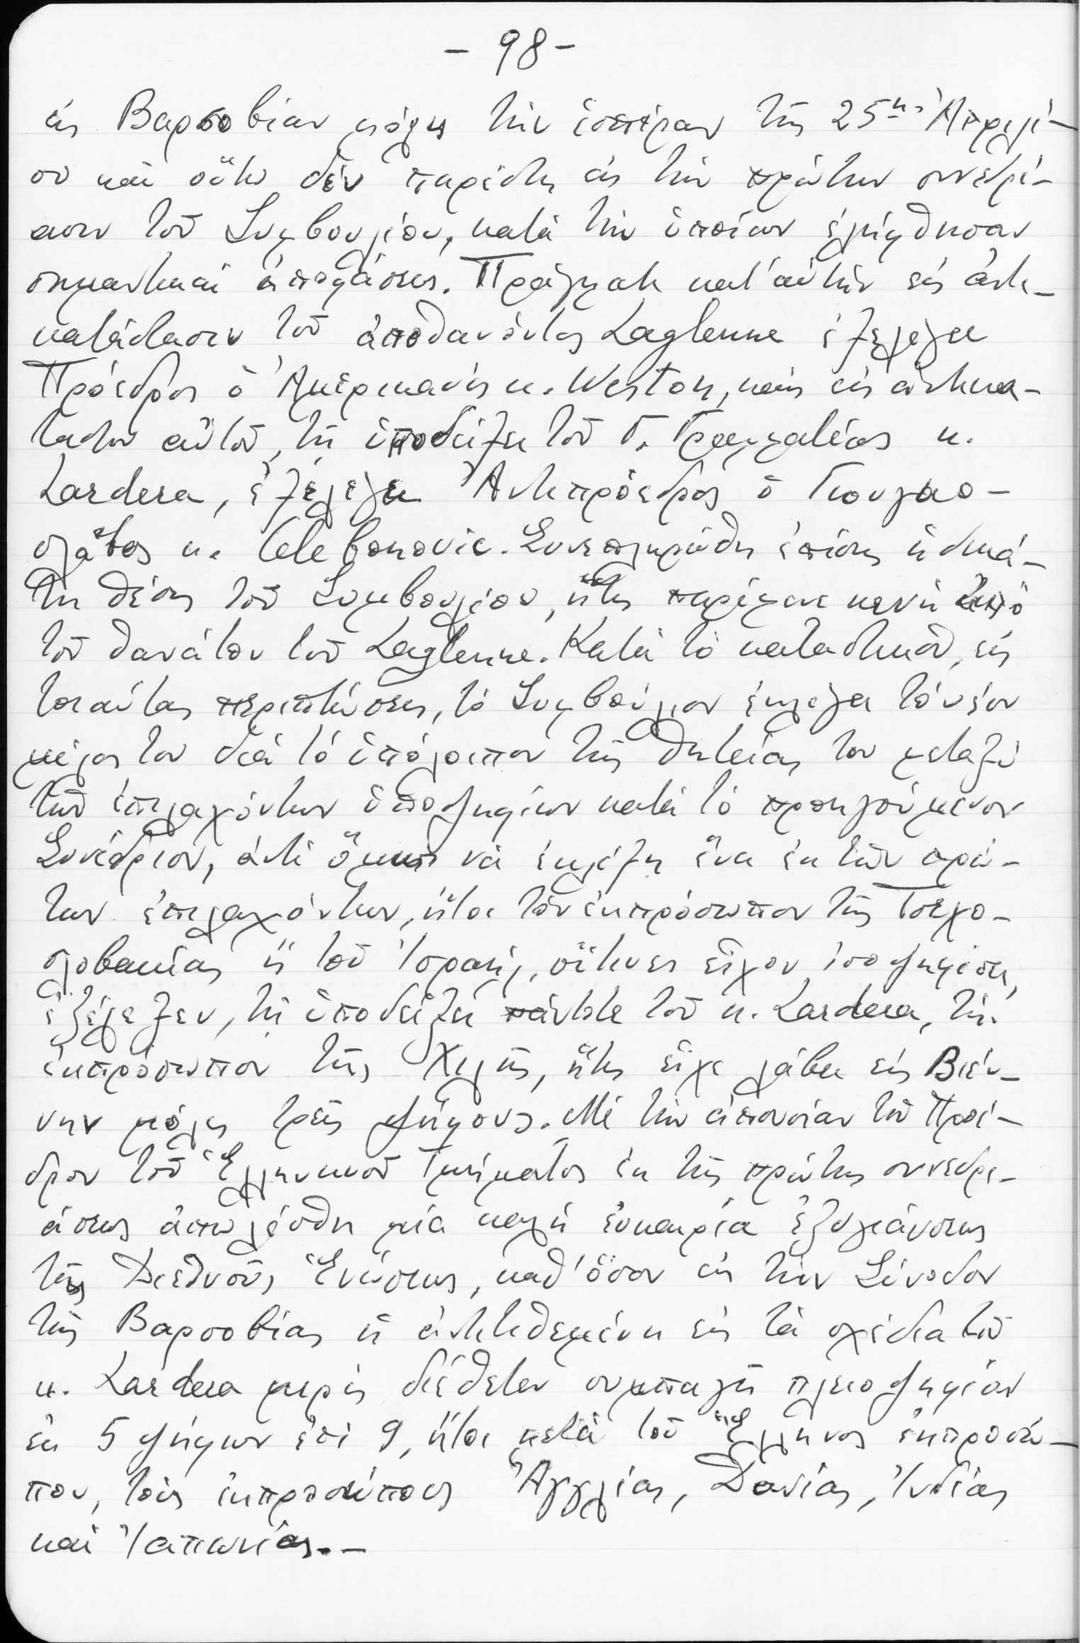 - 98 -
εἰς Βαρσοβίαν μόλις τὴν ἑσπέραν τῆς 25ης Ἀπριλί-
ου καὶ οὕτω δὲν παρέστη εἰς τὴν πρώτην συνεδρί-
ασιν τοῦ Συμβουλίου, κατὰ τὴν ὁποίαν ἐλήφθησαν
σημαντικαὶ ἀποφάσεις. Πράγματι κατ' αὐτὴν εἰς ἀντι-
κατάστασιν τοῦ ἀποθανόντος Laglenne ἐξελέγη
Πρόεδρος ὁ Ἀμερικανὸς κ. Weston, πρὸς εἰς ἀντικα-
τάστασιν αὐτοῦ, τῇ ὑποδείξει τοῦ Γ. Γραμματέως κ.
Lardera, ἐξελέγη Ἀντιπρόεδρος ὁ Γιουγκο-
σλάβος κ. Celebonovic. Συνεπληρώθη ἐπίσης ἡ δεκά-
τη θέσις τοῦ Συμβουλίου, ἥτις παρέμενε κενὴ ἀπὸ
τοῦ θανάτου τοῦ Laglenne. Κατὰ τὸ καταστατικὸν, εἰς
τοιαύτας περιπτώσεις, τὸ Συμβούλιον ἐκλέγει τὸ νέον
μέλος του διὰ τὸ ὑπόλοιπον τῆς θητείας του μεταξὺ
τῶν ἐπιλαχόντων ὑποψηφίων κατὰ τὸ προηγούμενον
Συνέδριον, ἀντὶ ὅμως νὰ ἐκλέξῃ ἕνα ἐκ τῶν πρώ-
των ἐπιλαχόντων, ἤτοι τὸν ἐκπρόσωπον τῆς Τσεχο-
σλοβακίας ἢ τοῦ Ἰσραήλ, οἵτινες εἶχον ἰσοψηφίσει,
ἐξέλεξεν, τῇ ὑποδείξει πάντοτε τοῦ κ. Lardera, τὴν
ἐκπρόσωπον τῆς Χιλῆς, ἥτις εἶχε λάβει εἰς Βιέν-
νην μόλις τρεῖς ψήφους. Μὲ τὴν ἀπουσίαν τοῦ Προέ-
δρου τοῦ Ἑλληνικοῦ Τμήματος ἐκ τῆς πρώτης συνεδρι-
άσεως ἀπωλέσθη μία καλὴ εὐκαιρία ἐξυγιάνσεως
τῆς Διεθνοῦς Ἑνώσεως, καθ' ὅσον εἰς τὴν Σύνοδον
τῆς Βαρσοβίας ἡ ἀντιτιθεμένη εἰς τὰ σχέδια τοῦ
κ. Lardera μερὶς διέθετεν συμπαγῆ πλειοψηφίαν
ἐκ 5 ψήφων ἐπὶ 9, ἤτοι μετὰ τοῦ Ἕλληνος ἐκπροσώ-
που, τοὺς ἐκπροσώπους Ἀγγλίας, Δανίας, Ἰνδίας
καὶ Ἰαπωνίας.-